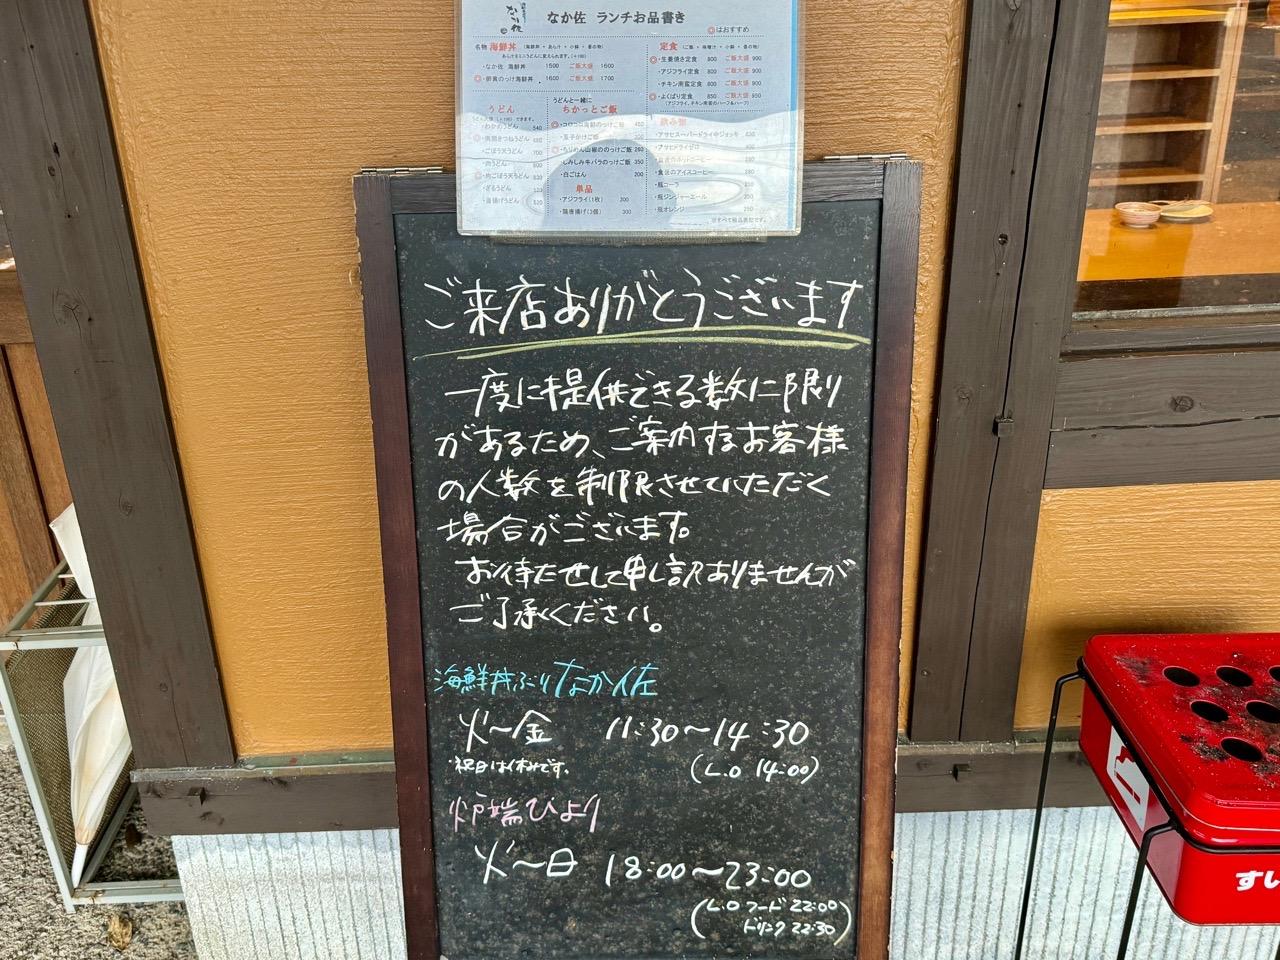 なか佐 ランチお品書き
◎はおすすめ
名物 海鮮丼
・なか佐 海鮮丼 1500 ご飯大盛 1600
◎・卵黄のっけ海鮮丼 1600 ご飯大盛 1700
定食 (ご飯・味噌汁・小鉢・香の物)
◎・生姜焼き定食 800 ご飯大盛 900
・アジフライ定食 800 ご飯大盛 900
・チキン南蛮定食 800 ご飯大盛 900
◎・よくばり定食 850 ご飯大盛 950
(アジフライ、チキン南蛮のハーフ&ハーフ)
うどん
・わかめうどん 540
・ごぼう天うどん
・肉うどん
・肉ごぼう天うどん
・ざるうどん
うどんと一緒に
ちかっとご飯
・玉子かけご飯
◎・ちりめん山椒ののっけご飯 260
・しみしみ牛バラのっけご飯 350
・白ごはん 200
単品
・アジフライ(1枚) 300
・鶏唐揚げ(3個) 300
・アサヒスーパードライ中ジョッキ
・アサヒドライゼロ
・食後のアイスコーヒー
・瓶コーラ
・瓶ジンジャーエール
・瓶オレンジ
ご来店ありがとうございます
一度に提供できる数に限り
があるため、ご案内するお客様
の人数を制限させていただく
場合がございます。
お待たせして申し訳ありませんが
ご了承ください。
海鮮丼ぶり なか佐
火〜金 11:30〜14:30
・祝日は休みです。 (L.O 14:00)
炉端ひより
火〜日 18:00〜23:00
(L.O フード 22:00
ドリンク 22:30)
すい